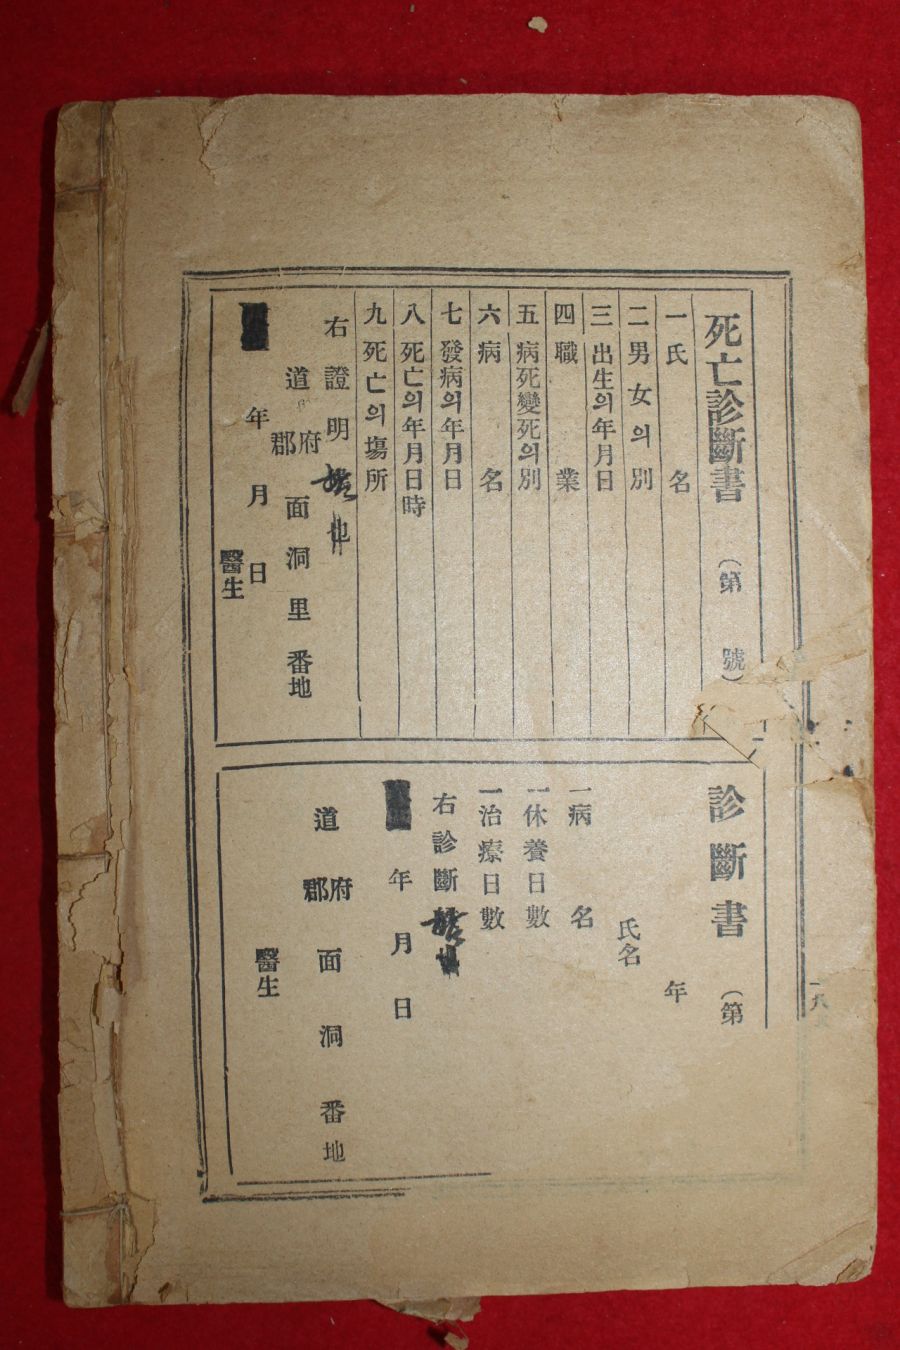 死亡診斷書 (第 號)
一 氏名
二 男女의別
三 出生의年月日
四 職業
五 病死變死의別
六 病名
七 發病의年月日
八 死亡의年月日時
九 死亡의塲所
右證明 也
道 郡府 面 洞里 番地
年 月 日
醫生
診斷書 (第
年
氏名
一病名
一休養日數
一治療日數
右診斷
年 月 日
道 郡府 面 洞 番地
醫生
一八